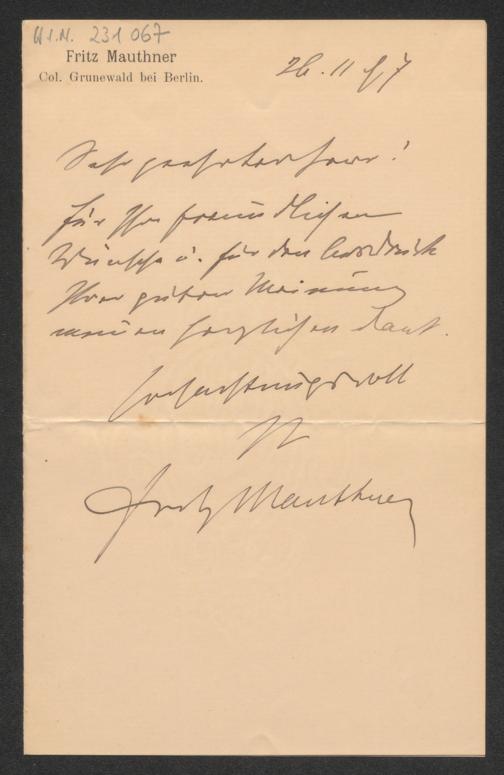 H.I.N. 231 067
Fritz Mauthner
Col. Grunewald bei Berlin.
26. 11 97
Sehr geehrter Herr!
Für Ihre freundlichen
Wünsche u. für den Ausdruck
Ihrer guten Meinung
meinen herzlichen Dank.
Hochachtungsvoll
Fritz Mauthner